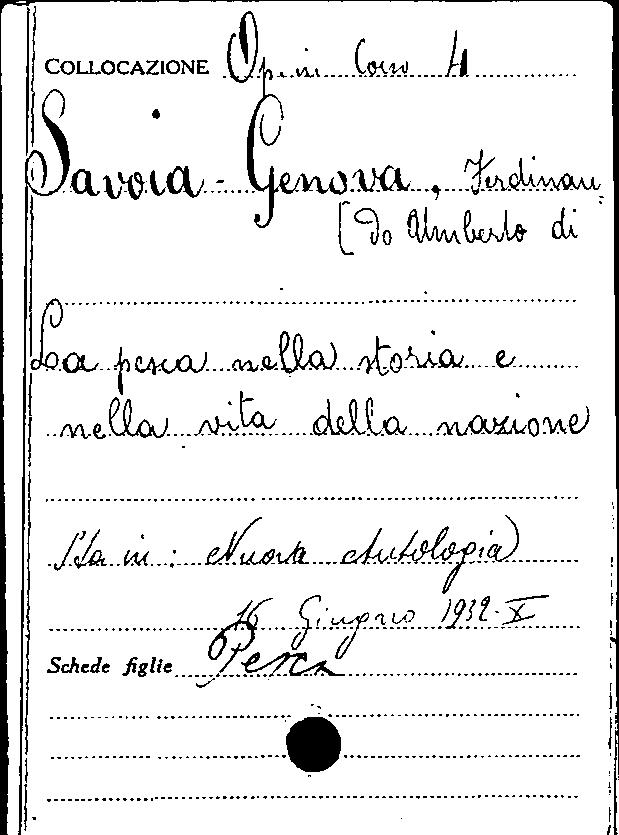 COLLOCAZIONE Op. in Corso 4
Savoia-Genova, Ferdinan=
[do Umberto di
La pesca nella storia e
nella vita della nazione
Sta in: Nuova Antologia
16 Giugno 1932-X
Schede figlie Pesca